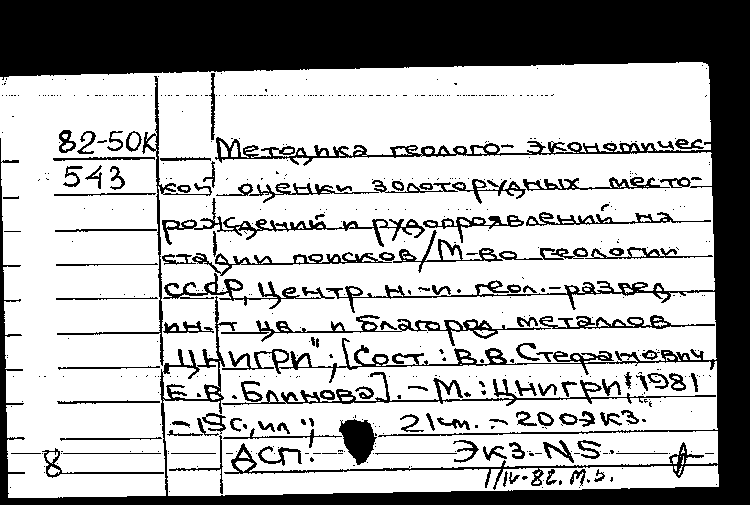 82-50К Методика геолого-экономичес-
543 кой оценки золоторудных место-
рождений и рудопроявлений на
стадии поисков/М-во геологии
СССР, Центр. н.-и. геол.-развед.
ин-т цв. и благород. металлов
"ЦНИГРИ"; [Сост.: В.В.Стефанович,
Е.В.Блинова]. - М.: ЦНИГРИ, 1981
.- 15с., ил.; 21см. - 200экз.
8 ДСП! Экз. N5.
1/IV-82.